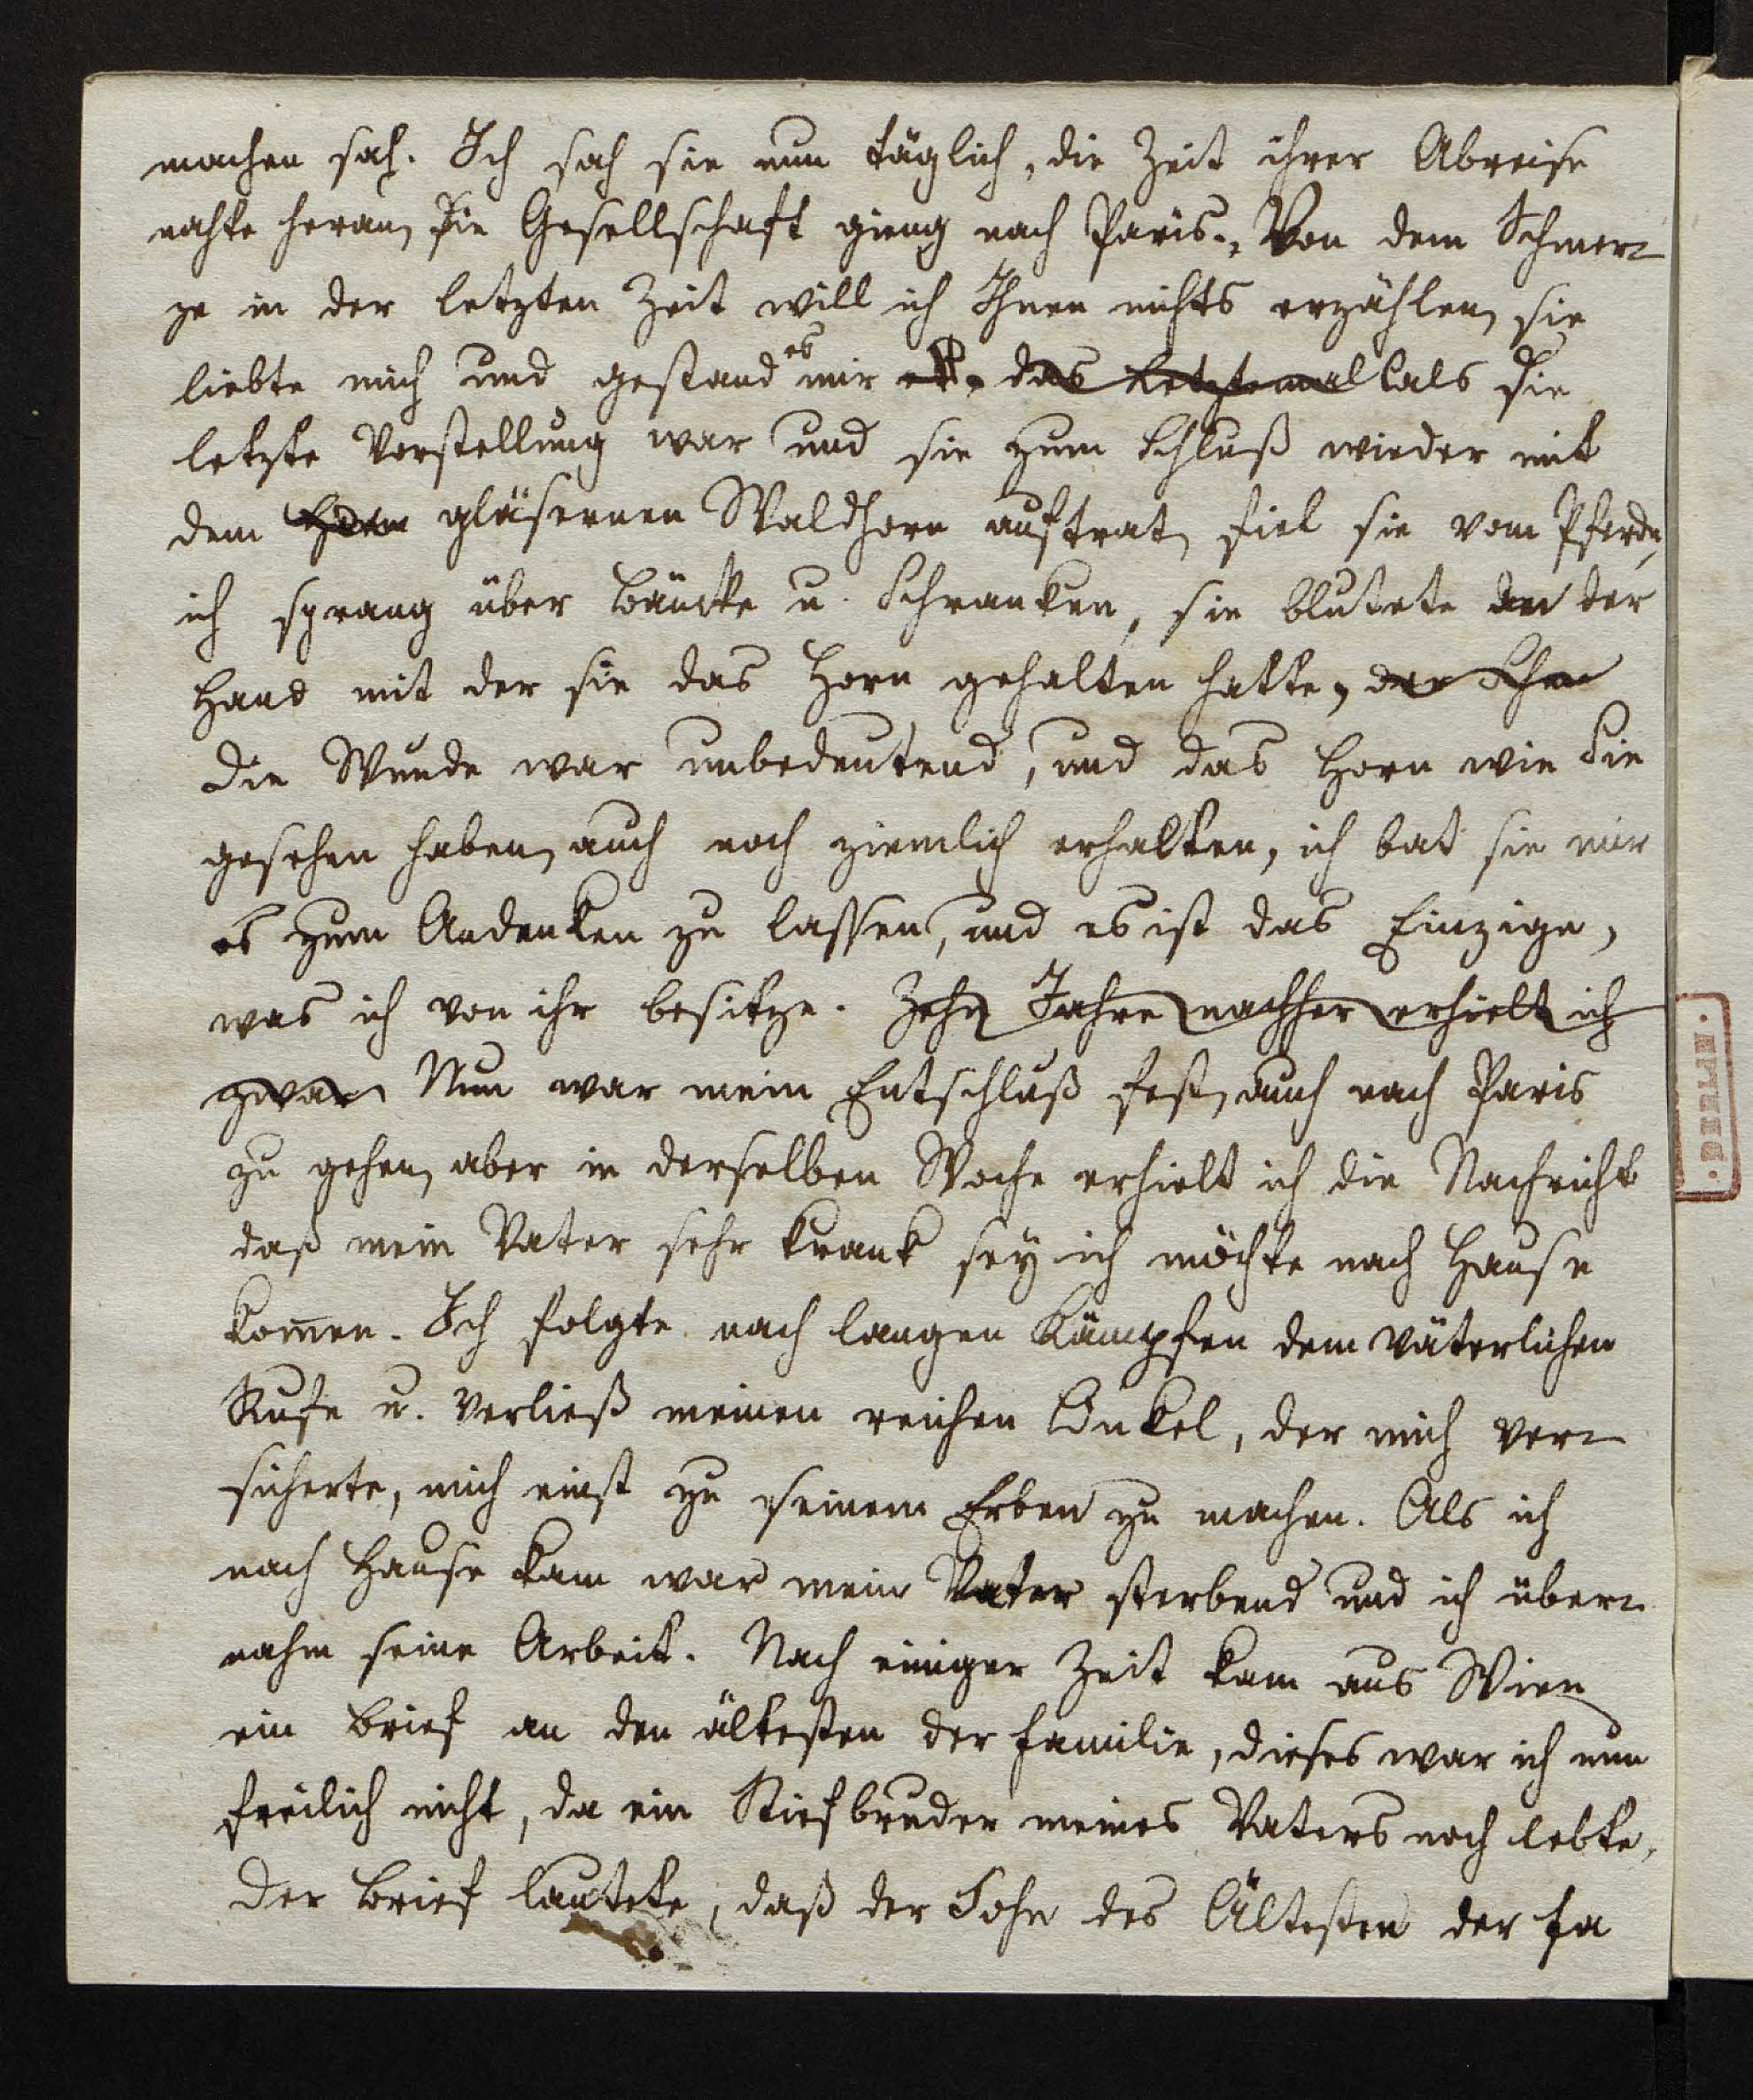 machen sah. Ich sah sie nun täglich, die Zeit ihrer Abreise
nahte heran, die Gesellschaft gieng nach Paris. Von dem Schmer-
ze in der letzten Zeit will ich Ihnen nichts erzählen, sie
es
liebte mich und gestand mir das Letztemal als die
letzte Vorstellung war und sie zum Schluß wieder mit
dem Horn gläsernen Waldhorn auftrat, fiel sie vom Pferde,
ich sprang über Bänke u. Schranken, sie blutete an der
Hand mit der sie das Horn gehalten hatte, der
die Wunde war unbedeutend, und das Horn wie Sie
gesehen haben, auch noch ziemlich erhalten, ich bat sie mir
es zum Andenken zu lassen, und es ist das Einzige,
was ich von ihr besitze. Zehn Jahre nachher erhielt ich
zwar Nun war mein Entschluß fest, auch nach Paris
zu gehen, aber in derselben Woche erhielt ich die Nachricht
daß mein Vater sehr krank sey ich möchte nach Hause
kom̄en. Ich folgte nach langen Kämpfen dem väterlichen
Rufe u. verließ meinen reichen Onkel, der mich ver-
sicherte, mich einst zu seinem Erben zu machen. Als ich
nach Hause kam war mein Vater sterbend und ich über-
nahm seine Arbeit. Nach einiger Zeit kam aus Wien
ein Brief an den ältesten der Familie, dieses war ich nun
freilich nicht, da ein Stiefbruder meines Vaters noch lebte,
der Brief lautete, daß der Sohn des Ältesten der Fa
BERLIN.